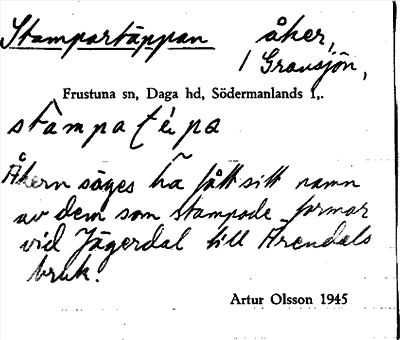 Stampartäppan åker,
1 Gravsjön,
Frustuna sn, Daga hd, Södermanlands l,.
stampatépa
Åkern säges ha fått sitt namn
av dem som stampade formar
vid Jägerdal till Ärendals
bruk.
Artur Olsson 1945